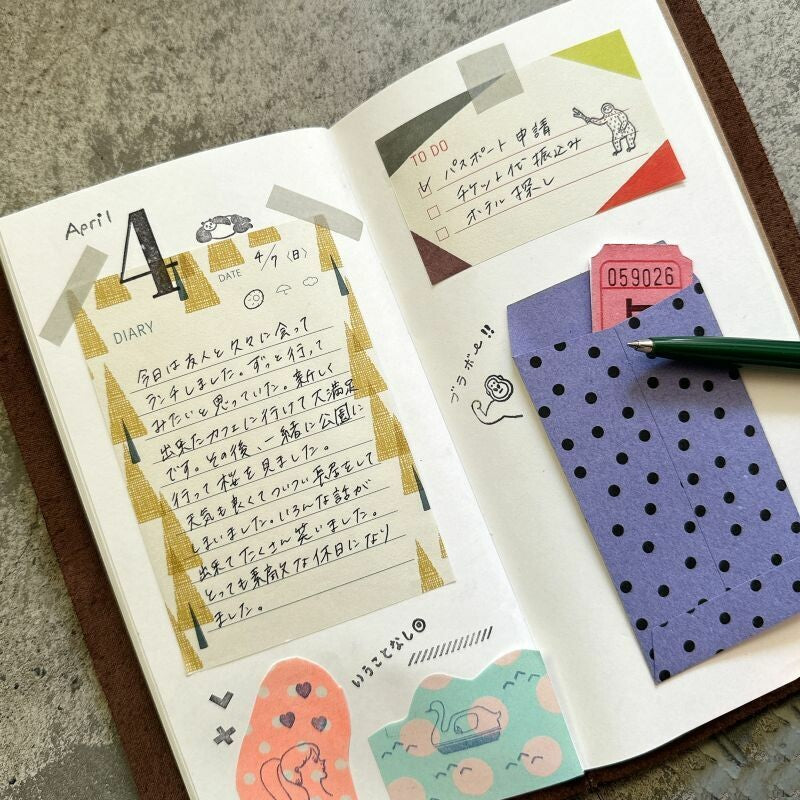 April
4
DATE 4/7 (日)
DIARY
今日は友人と久々に会って
ランチしました。ずっと行って
みたいと思っていた。新しく
出来たカフェに行けて大満足
です。その後、一緒に公園に
行って桜を見ました。
天気も良くてついつい長居をして
しまいました。いろんな話が
出来てたくさん笑いました。
とっても素敵な休日になり
ました。
いうことなし◎
TO DO
パスポート申請
チケット代振込み
ホテル探し
059026
ブラボー!!